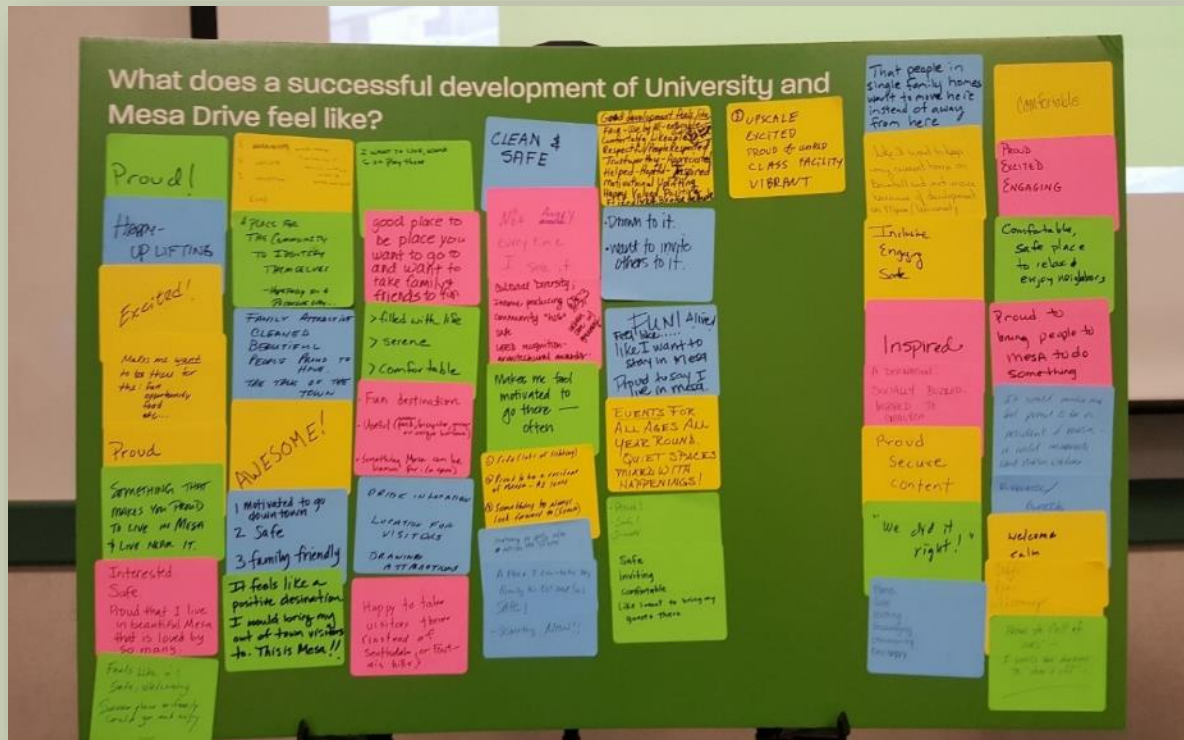 What does a successful development of University and
Mesa Drive feel like?
Proud!
Happy-
UPLIFTING
Excited!
Makes me want
to be there for
this: fun
opportunity
food
etc...
Proud
SOMETHING THAT
MAKES YOU PROUD
TO LIVE IN MESA
& LIVE NEAR IT.
Interested
Safe.
Proud that I live
in beautiful Mesa
that is loved by
so many.
Feels like
Safe, Welcoming
A PLACE FOR
THE COMMUNITY
TO IDENTIFY
THEMSELVES
FAMILY ATTRACTIVE
CLEANED
BEAUTIFUL
PEOPLE PROUD TO
HAVE.
THE TALK OF THE
TOWN
AWESOME!
1 motivated to go
downtown
2 Safe
3. family friendly
It feels like a
positive desination
I would bring my
out of town visitors
to. This is Mesa!!
I WANT TO LIVE, WORK
& Play there
good place to
be place you
want to go to
and want to
take family
friends to fun
> filled with life
> serene
> comfortable
- Fun destination
- Something Mesa can be
known for
PRIDE IN LOCATION
LOCATION FOR
VISITORS
DRAWING
ATTRACTIONS
Happy to take
visitors there
(instead of
Scottsdale, or
hike)
CLEAN &
SAFE
Not Angry
every time
I see it
Cultural Diversity;
Income producing
community "hub"
safe
LEED recognition-
architectural awards
Makes me feel
motivated to
go there —
often
① Safe (lots of lighting)
② Proud to be a resident
of Mesa
③ Something to always
look forward to
A Place I can take my
family to
SAFE!
Good development feels like
Respectful/People Respected
Motivational Uplifting
Happy Valued Positive
- Drawn to it.
- want to invite
others to it.
FUN! Alive!
Feel like.....
like I want to
stay in Mesa
Proud to say I
live in mesa.
EVENTS FOR
ALL AGES ALL
YEAR ROUND.
QUIET SPACES
MIXED WITH
HAPPENINGS!
- Proud!
- Safe!
Safe
Inviting
Comfortable
Like I want to bring my
guests there
① UPSCALE
EXCITED
PROUD of WORLD
CLASS FACILITY
VIBRANT
That people in
single family homes
want to move here
instead of away
from here
Inclusive
Engaging
Safe
Inspired
Proud
Secure
Content
"We did it
right!"
Comfortable
PROUD
EXCITED
ENGAGING
Comfortable,
safe place
to relax &
enjoy neighbors
Proud to
bring people to
mesa to do
something
welcome
calm